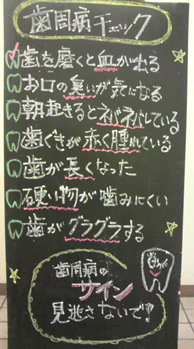 歯周病チェック
歯を磨くと血が出る
お口の臭いが気になる
朝起きるとネバネバしている
歯ぐきが赤く腫れている
歯が長くなった
硬い物が噛みにくい
歯がグラグラする
歯周病の
サイン
見逃さないで!